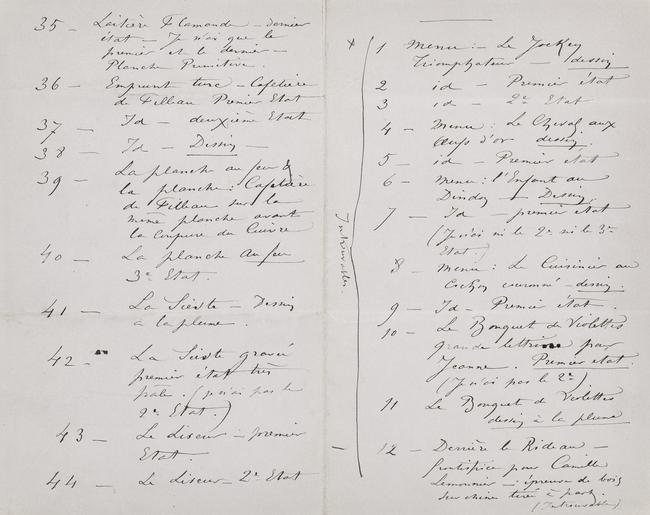 35 - Laitière Flamande - dernier
état - Je n'ai que le
premier et le dernier -
Planche Primitive.
36 - Emprunt turc - Cafetière
de Filleau Premier Etat
37 - Id - deuxième Etat
38 - Id - Dessin -
39 - La planche au feu &
la planche : Cafetière
de Filleau sur la
même planche avant
la coupure du Cuivre
40 - La planche Au feu
3e Etat.
41 - La Sieste - Dessin
à la plume.
42 - La Sieste gravée
premier état très
pale. (je n'ai pas le
2e Etat.)
43 - Le Liseur - premier
Etat.
44 - Le Liseur - 2e Etat
Introuvables.
x 1 Menu :- Le Jockey
Triomphateur - dessin
2 id - Premier état
3 id - 2e Etat
4 - Menu : Le Cheval aux
œufs d'or dessin.
5 - id - Premier état
6 - Menu : l'Enfant au
Dindon - Dessin
7 - Id - premier état
(Je n'ai ni le 2e ni le 3e
Etat.)
8 - Menu : Le Cuisinier au
Cochon couronné - dessin.
9 - Id - Premier état.
10 - Le Bouquet de Violettes
grande lettrine pour
Jeanne. Premier etat.
(Je n'ai pas le 2e)
11 Le Bouquet de Violettes
dessin à la plume
12 - Derrière le Rideau -
frontispice pour Camille
Lemonnier - épreuve de bois
sur chine tiré à part.
(Introuvable)